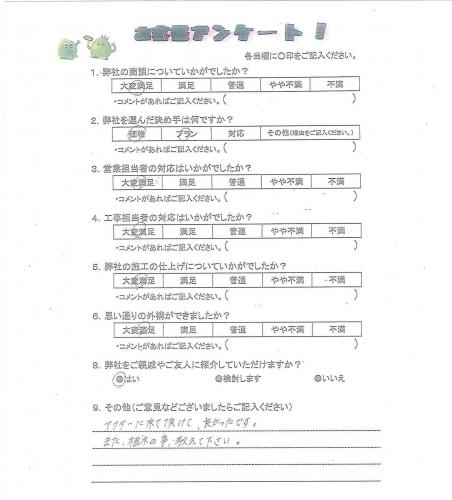 お客様アンケート!
各当欄に〇印をご記入ください。
1. 弊社の商談についていかがでしたか?
大変満足 満足 普通 やや不満 不満
・コメントがあればご記入ください。( )
2. 弊社を選んだ決め手は何ですか?
価格 プラン 対応 その他(理由をご記入ください。)
・コメントがあればご記入ください。( )
3. 営業担当者の対応はいかがでしたか?
大変満足 満足 普通 やや不満 不満
・コメントがあればご記入ください。( )
4. 工事担当者の対応はいかがでしたか?
大変満足 満足 普通 やや不満 不満
・コメントがあればご記入ください。( )
5. 弊社の施工の仕上げについていかがでしたか?
大変満足 満足 普通 やや不満 不満
・コメントがあればご記入ください。( )
6. 思い通りの外構ができましたか?
大変満足 満足 普通 やや不満 不満
・コメントがあればご記入ください。( )
8. 弊社をご親戚やご友人に紹介していただけますか?
●はい ●検討します ●いいえ
9. その他(ご意見などございましたらご記入ください)
アフターに来て頂けて、良かったです。
また、植木の事、教えて下さい。